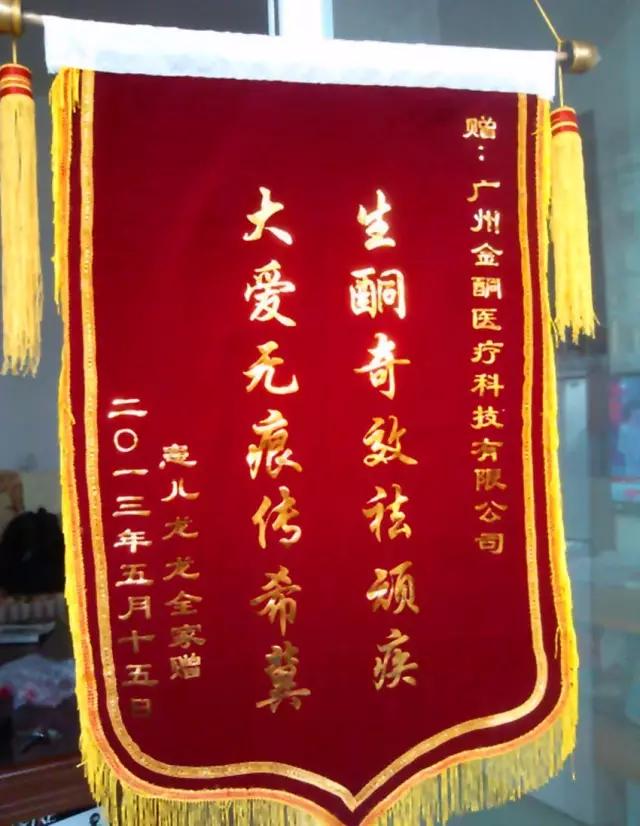 赠：广州金酮医疗科技有限公司
生酮奇效祛顽疾
大爱无痕传希冀
患儿龙龙全家赠
二〇一三年五月十五日